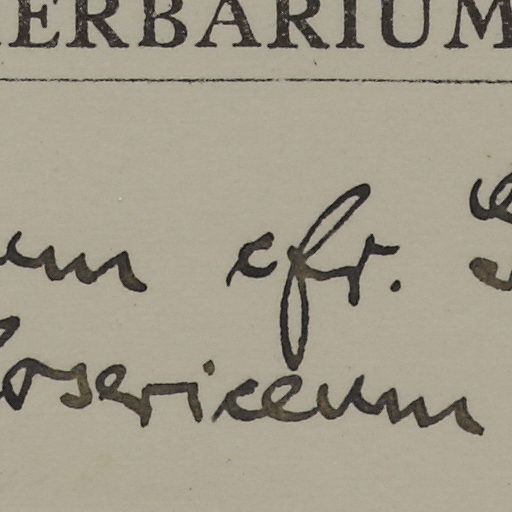 HERBARIUM
um cfr. S
osericeum